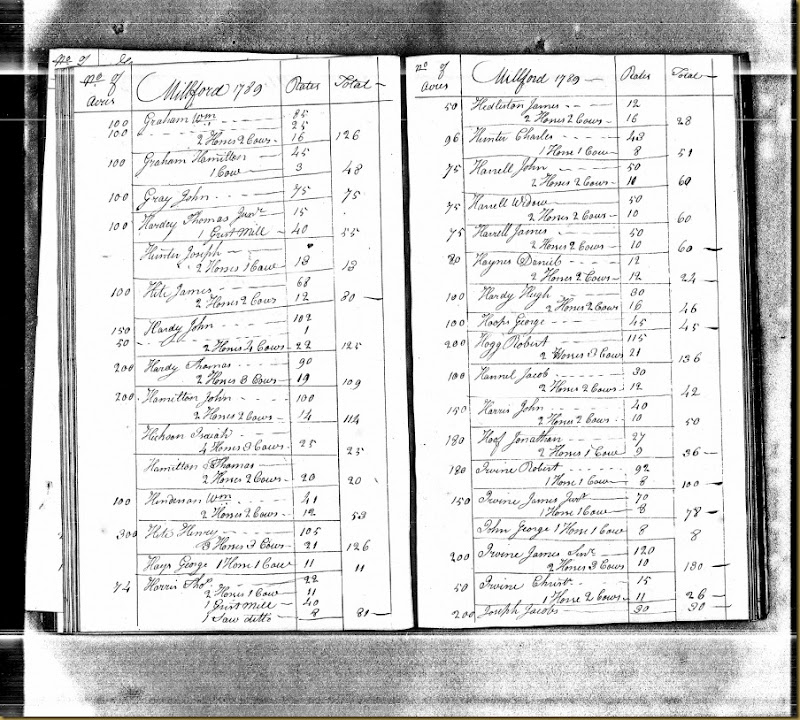 No of
No of Acres Millford 1789 Rates Total
100 Graham Wm 85
100 25
2 Horses 2 Cows 16 126
100 Graham Hamilton 45
1 Cow 3 48
100 Gray John 75 75
100 Hardey Thomas Junr 15
1 Grist Mill 40 55
Hunter Joseph
2 Horses 1 Cow 13 13
100 Hite James 68
2 Horses 2 Cows 12 80
150 Hardy John 102
50 1
2 Horses 4 Cows 22 125
200 Hardy Thomas 90
2 Horses 3 Cows 19 109
200 Hamilton John 100
2 Horses 2 Cows 14 114
Isaiah
4 Horses 3 Cows 25 25
Hamilton Thomas
2 Horses 2 Cows 20 20
100 Henderson Wm 41
2 Horses 2 Cows 12 53
300 Hite Henry 105
3 Horses 3 Cows 21 126
Hays George 1 Horse 1 Cow 11 11
74 Horris Thos 22
2 Horses 1 Cow 11
1 Grist Mill 40
1 Saw ditto 8 81
No of Acres Millford 1789 Rates Total
50 Hedleston James 12
2 Horses 2 Cows 16 28
96 Hunter Charles 43
1 Horse 1 Cow 8 51
75 Harrell John 50
2 Horses 2 Cows 10 60
75 Harrell Widow 50
2 Horses 2 Cows 10 60
75 Harrell James 50
2 Horses 2 Cows 10 60
80 Haynes Daniel 12
2 Horses 2 Cows 12 24
100 Hardy Hugh 30
2 Horses 2 Cows 16 46
100 Hoops George 45 45
200 Hogg Robert 115
2 Horses 3 Cows 21 136
100 Hannel Jacob 30
2 Horses 2 Cows 12 42
150 Harris John 40
2 Horses 2 Cows 10 50
180 Hoof Jonathan 27
2 Horses 1 Cow 9 36
180 Irvine Robert 92
1 Horse 1 Cow 8 100
150 Irvine James Junr 70
1 Horse 1 Cow 8 78
John George 1 Horse 1 Cow 8 8
200 Irvine James Sinr 120
2 Horses 3 Cows 10 130
50 Irvine Christr 15
1 Horse 2 Cows 11 26
200 Joseph Jacobs 90 90